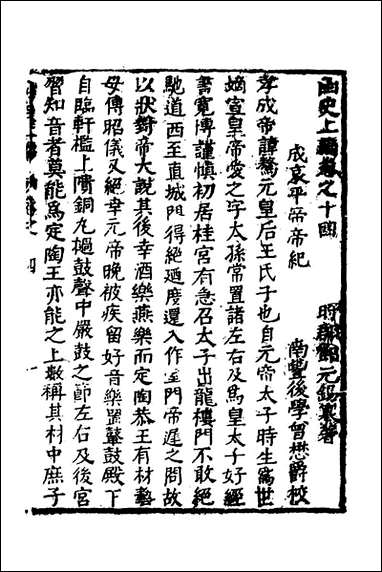 函史上編卷之十四
盱郡鄧元錫纂著
成哀平帝帝紀
南豐後學曾懋爵校
孝成帝諱驁元皇后王氏子也自元帝太子時生為世
嫡宣皇帝愛之字太孫常置諸左右及為皇太子好經
書寬博謹慎初居桂宮有急召太子出龍樓門不敢絕
馳道西至直城門得絕廼度還入作室門帝遲之問故
以狀對帝大說其後幸酒樂燕樂而定陶恭王有材藝
母傅昭儀又絕幸元帝晚被疾留好音樂置鼙鼓殿下
自臨軒檻上隤銅丸擿鼓聲中嚴鼓之節左右及後宮
習知音者莫能為定陶王亦能之上數稱其材中庶子